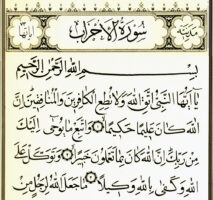 سُورَةُ الْأَحْزَابِ
بِسْمِ اللهِ الرَّحْمَنِ الرَّحِيمِ
يَا أَيُّهَا النَّبِيُّ اتَّقِ اللهَ وَلَا تُطِعِ الْكَافِرِينَ وَالْمُنَافِقِينَ إِنَّ
اللهَ كَانَ عَلِيمًا حَكِيمًا وَاتَّبِعْ مَا يُوحَى إِلَيْكَ
مِنْ رَبِّكَ إِنَّ اللهَ كَانَ بِمَا تَعْمَلُونَ خَبِيرًا وَتَوَكَّلْ عَلَى
اللهِ وَكَفَى بِاللهِ وَكِيلًا مَا جَعَلَ اللهُ لِرَجُلٍ مِنْ